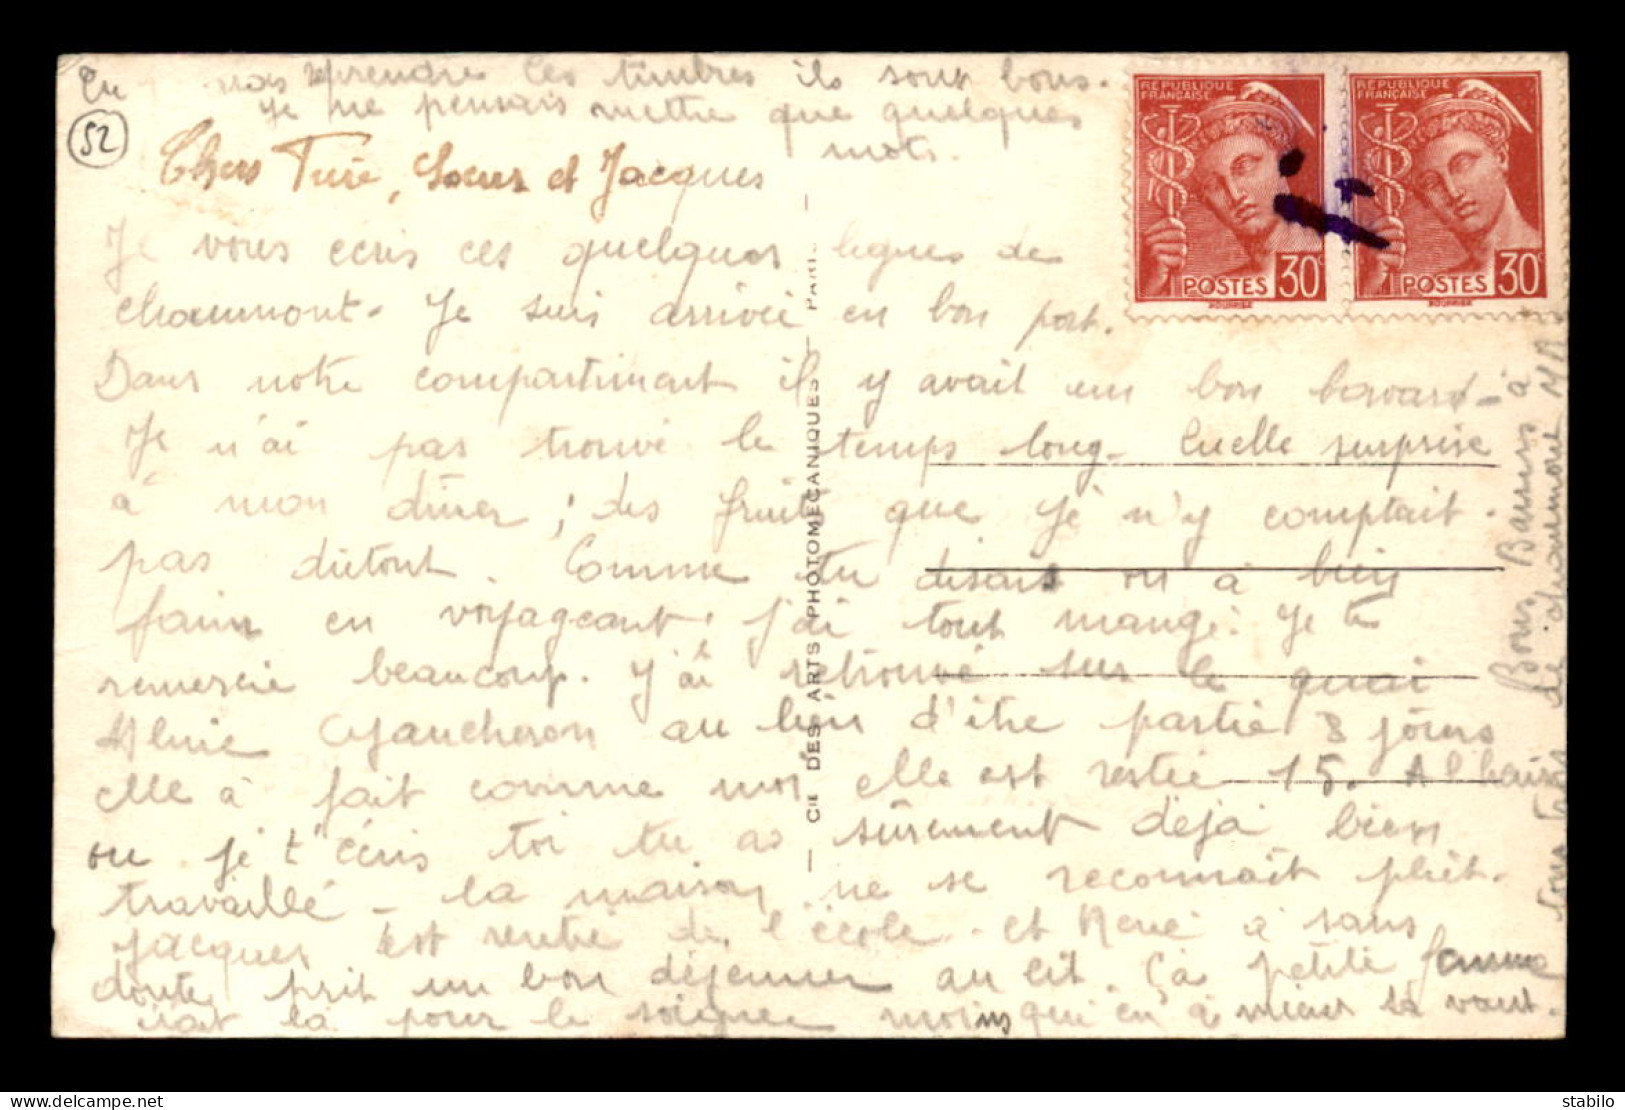 reprendre les timbres ils sont bons.
Je ne pensais mettre que quelques
mots.
52
Chers Soeur et Jacques
Je vous écris ces quelques lignes de
chaumont. Je suis arrivée en bon port.
Dans notre compartiment il y avait un bon bavard -
Je n'ai pas trouvé le temps long. surprise
à mon diner, des fruits que je n'y comptait
pas dutout. Comme tu disais on à bien
faim en voyageant. j'ai tout mangé. Je te
remercie beaucoup. J'ai retrouvé sur le quai
Aline au lieu d'être partie 8 jours
elle à fait comme moi elle est restée 15. A l'
ou je t'écris toi tu as sûrement déjà bien
travaillé - la maison ne se reconnait
Jacques est rentré de l'école. et René à sans
doute prit un bon déjeuner au lit. Sa petite femme
la pour le soigner moins qui en à mieux
Bons Baisers à
tous
de chaumont
RÉPUBLIQUE
FRANÇAISE
POSTES 30c
RÉPUBLIQUE
FRANÇAISE
POSTES 30c
CIE DES ARTS PHOTOMÉCANIQUES — PARIS
delcampe.net
stabilo